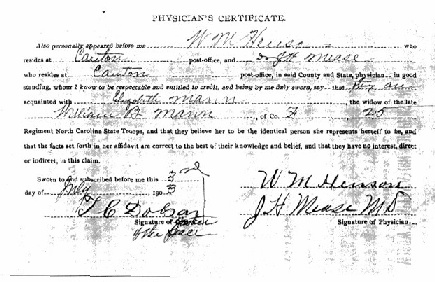 PHYSICIAN'S CERTIFICATE.
Also personally appeared before me W. M. Henson who
resides at Canton post-office, and Dr J H Mease
who resides at Canton post-office, in said County and State, physician in good
standing, whom I know to be respectable and entitled to credit, and being by me duly sworn, say that they are
acquainted with Elizabeth Mann the widow of the late
William A Mann, of Co. F, 25
Regiment North Carolina State Troops, and that they believe her to be the identical person she represents herself to be, and
that the facts set forth in her affidavit are correct to the best of their knowledge and belief, and that they have no interest, direct
or indirect, in this claim.
Sworn to and subscribed before me this 3rd
day of July 190 3
W M Henson
J H Mease MD
Signature of
Signature of Physician
of the Peace